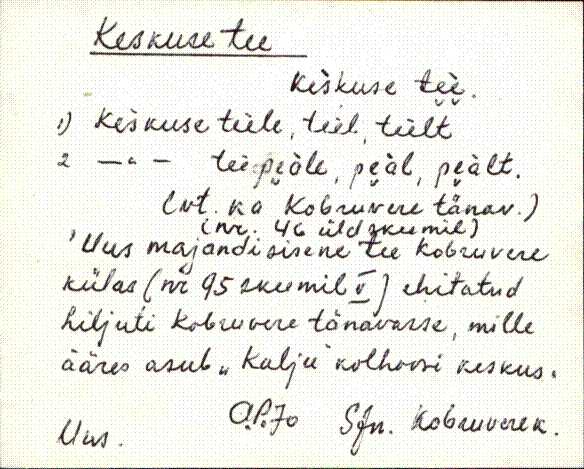 Keskuse tee
keskuse tee.
1) Keskuse teele, teel, teelt
2 — " — tee peäle, peäl, peält.
(vt. ka Kobruvere tänav.)
(nr. 46 üldskeemil)
Uus majandisisene tee Kobruvere
külas (nr 95 skeemil V) ehitatud
hiljuti Kobruvere tänavasse, mille
ääres asub „Kalju" kolhoosi keskus.
Sjn. Kobruvere k.
Uus.